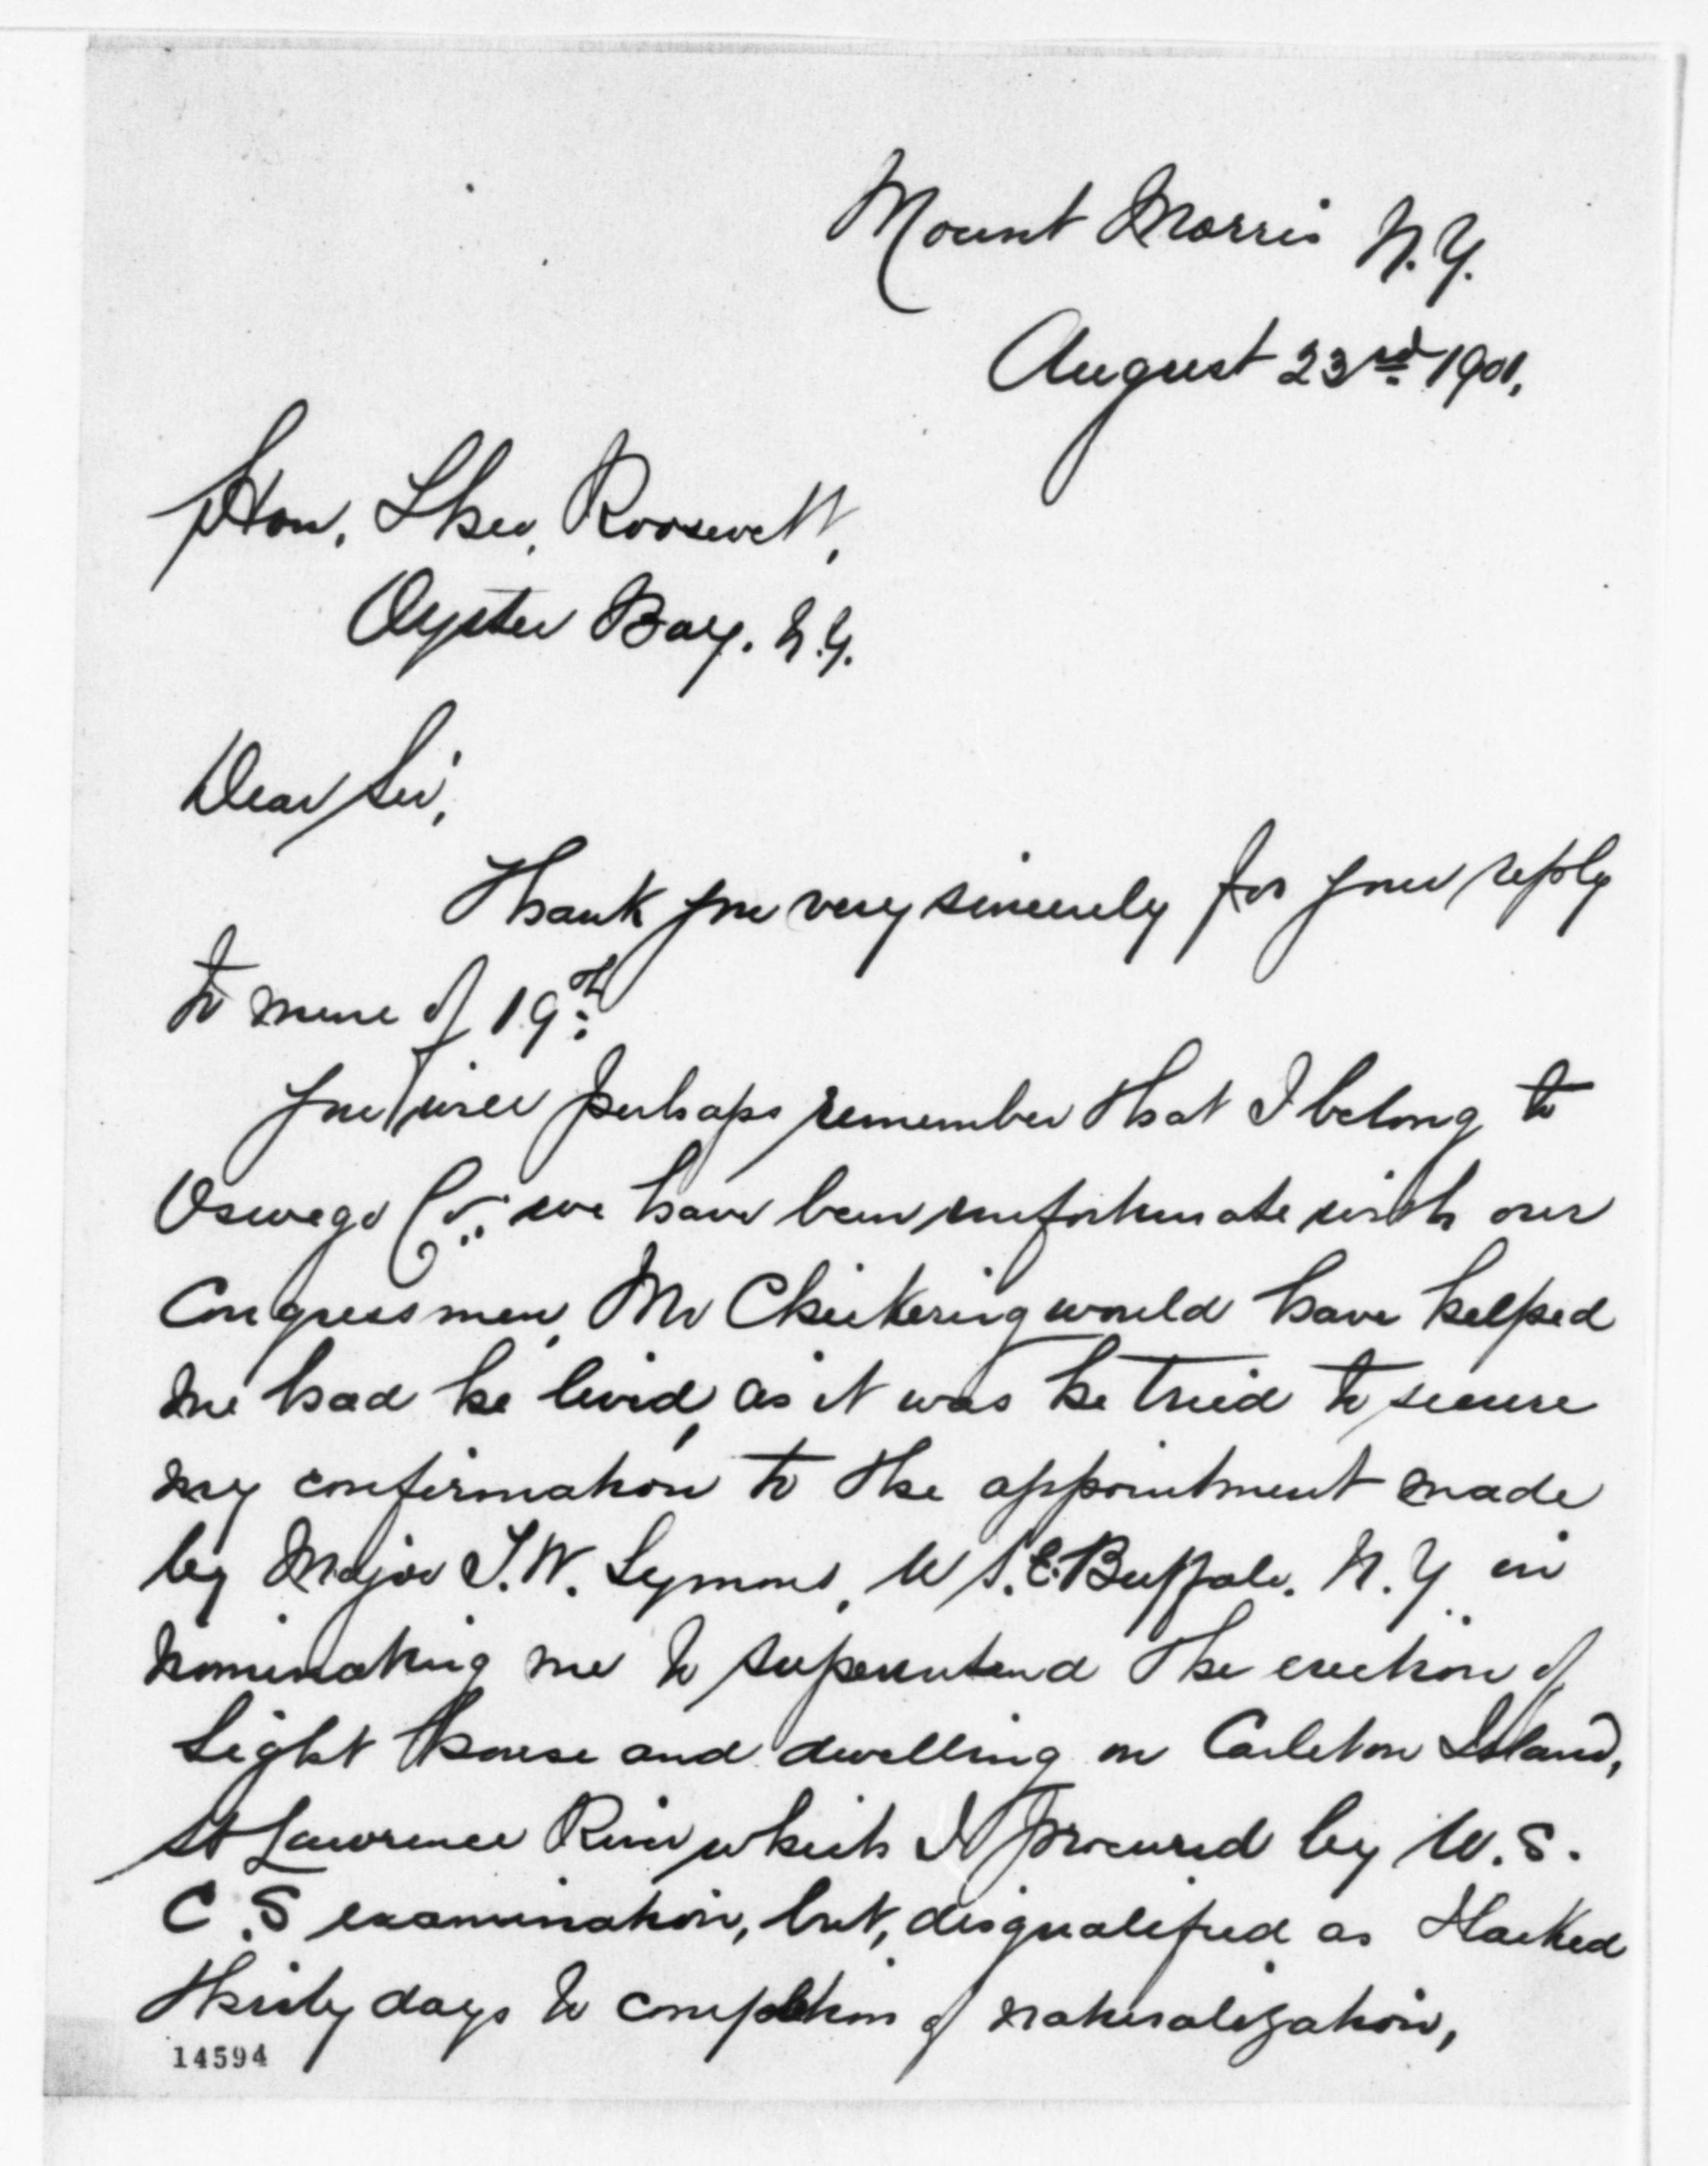 Mount Morris N.Y.
August 23rd 1901,
Hon. Theo. Roosevelt,
Oyster Bay. N.Y.
Dear Sir,
Thank you very sincerely for your reply
to mine of 19th:
You will perhaps remember that I belong to
Oswego Co., we have been unfortunate with our
Congressmen, Mr Chickering would have helped
me had he lived, as it was he tried to secure
my confirmation to the appointment made
by Major T.W. Symons, U.S.E. Buffalo. N.Y. in
nominating me to superintend the erection of
Light House and dwelling on Carleton Island,
St Lawrence River which I procured by U.S.
C.S examination, but, disqualified as I lacked
thirty days to completion of naturalization,
14594